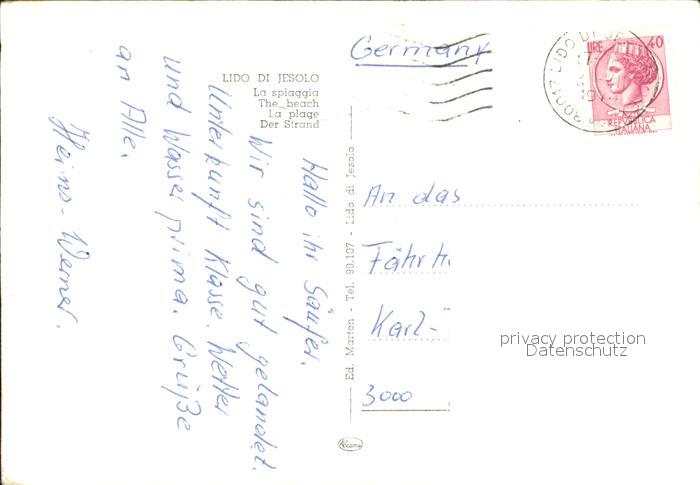 Germany
LIDO DI JESOLO
La spiaggia
The beach
La plage
Der Strand
LIRE 40
REPVBBLICA
ITALIANA
30017 LIDO DI JE
Hallo ihr Säufer.
Wir sind gut gelandet.
Unterkunft Klasse. Wetter
und Wasser prima. Grüße
an Alle.
Heinz-Werner.
Ed. Marton - Tel. 90.107 - Lido di Jesolo
An das
Fährh
Karl-
3000
privacy protection
Datenschutz